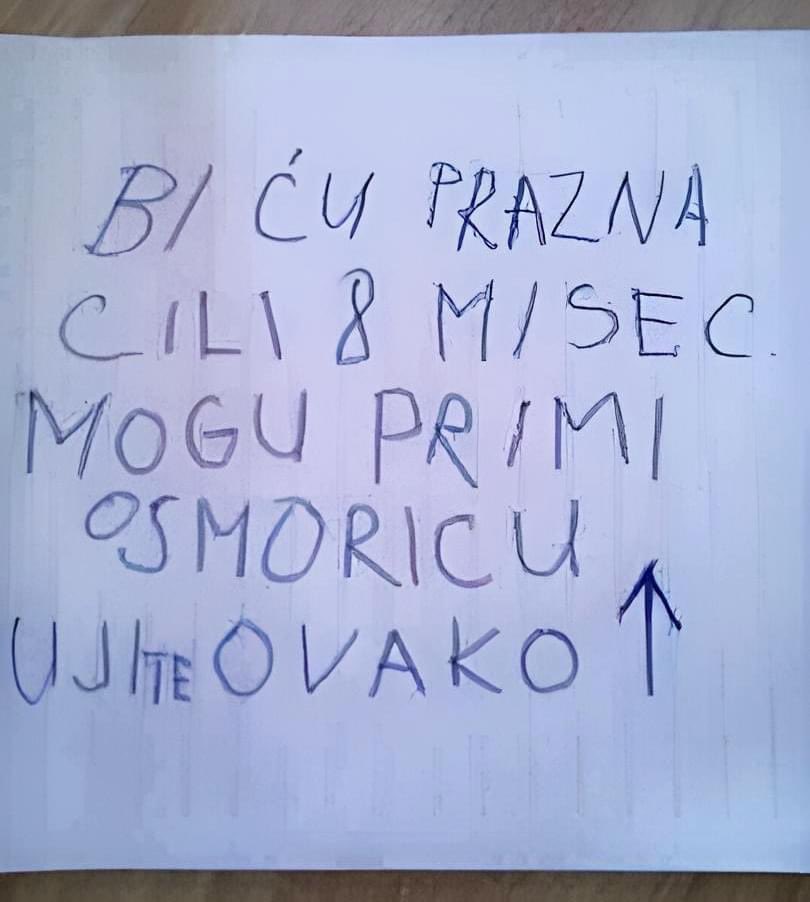 BI ĆU PRAZNA
CILI 8 MISEC.
MOGU PRIMI
OSMORICU
UJITE OVAKO ↑